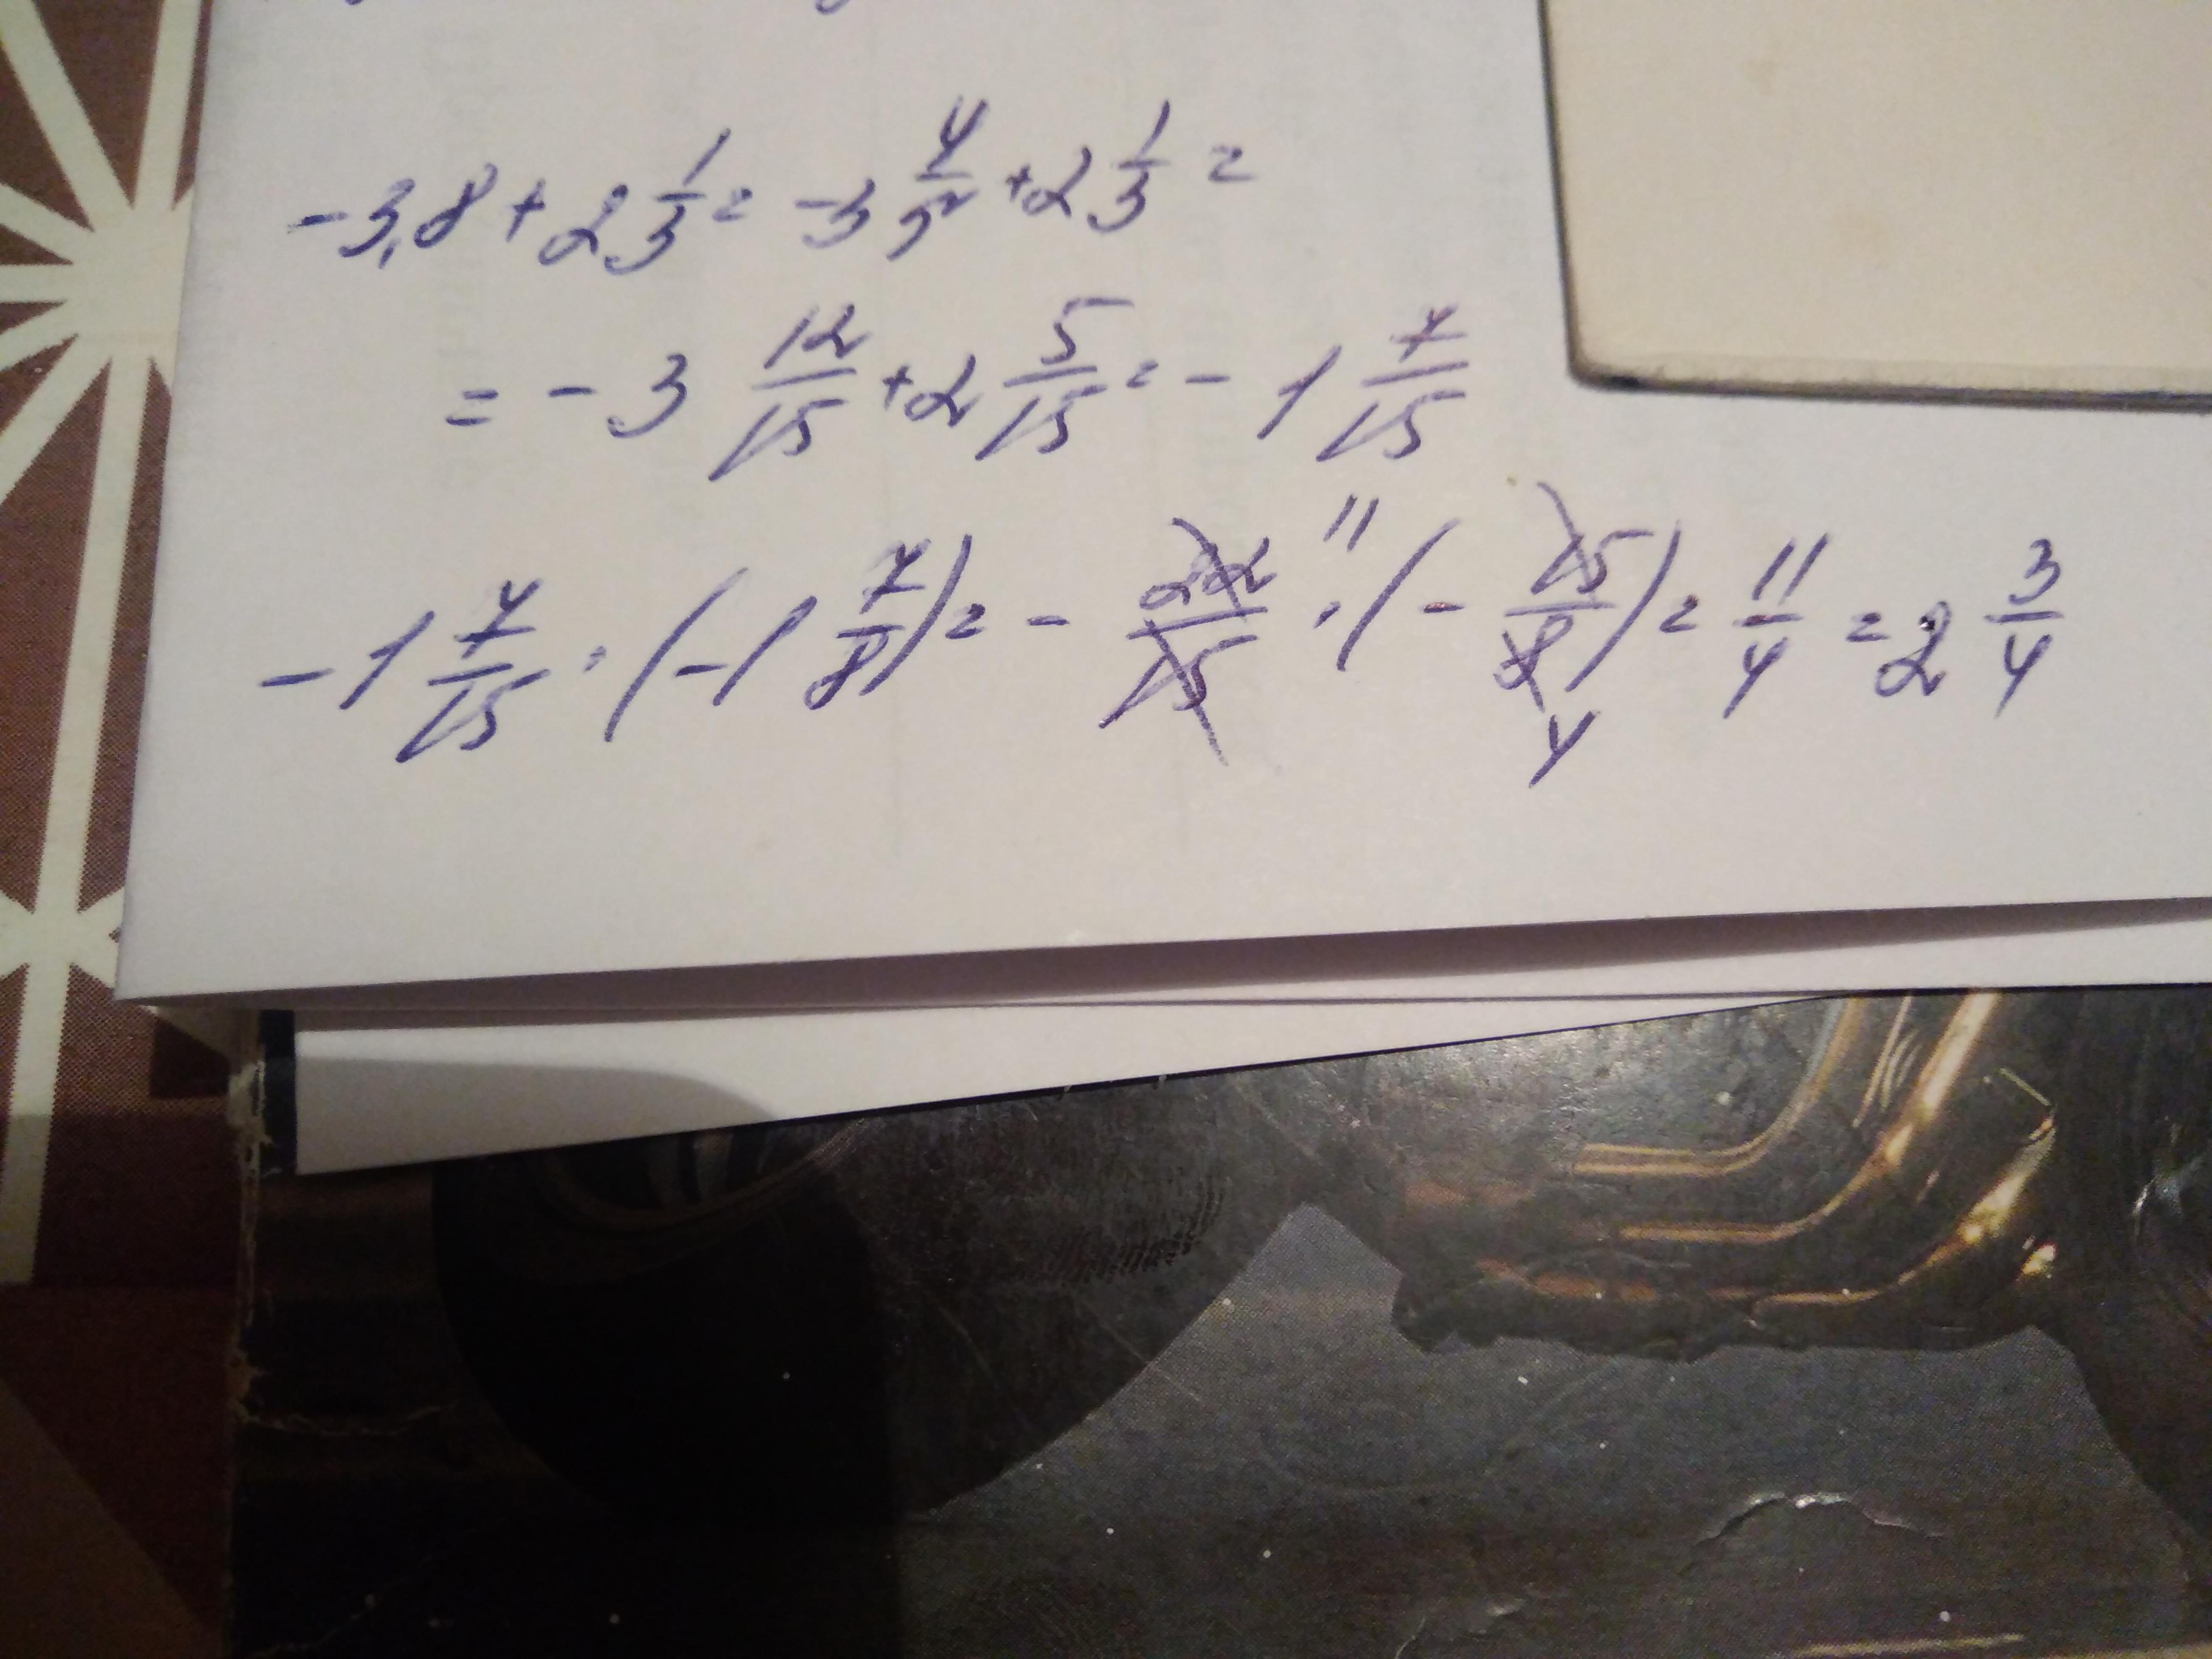 -3,8 + 2 1/3 = -3 4/5 + 2 1/3 =
= -3 12/15 + 2 5/15 = -1 7/15
-1 7/15 · (-1 7/8) = - 22/15 11 · (- 15/8 4) = 11/4 = 2 3/4